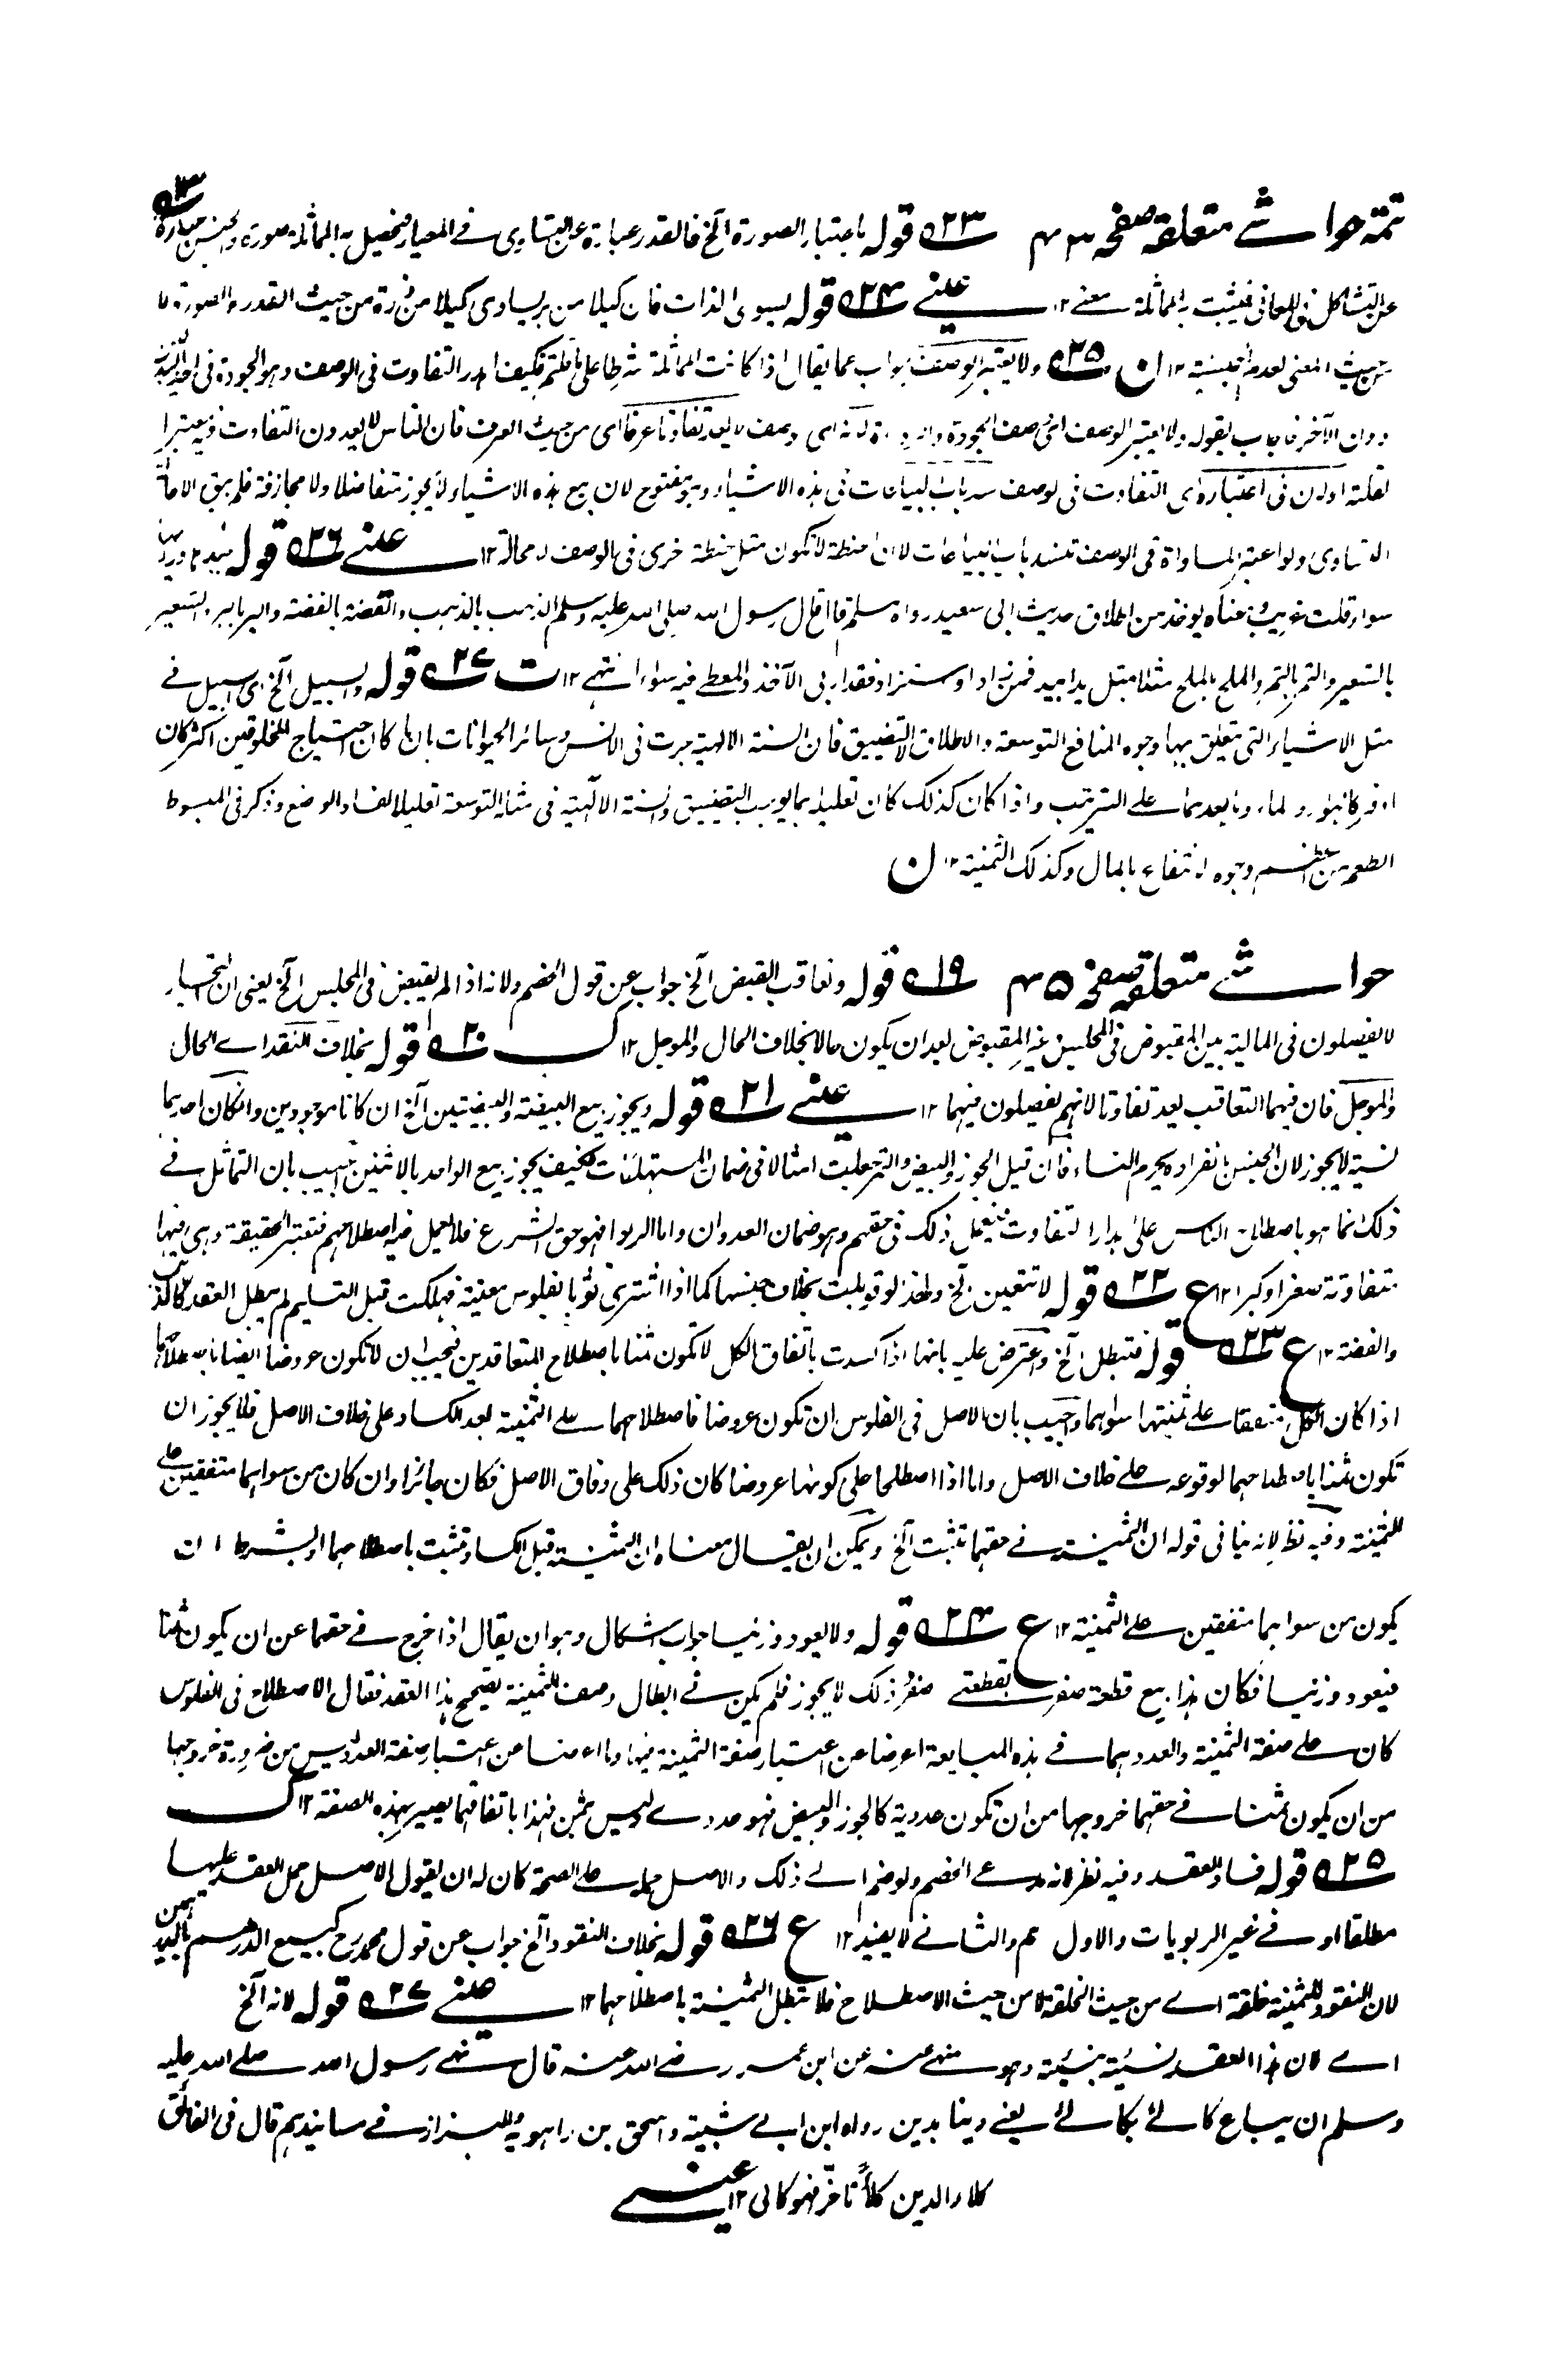 تتمه حواشے متعلقه صفحه ۴۳ ۲۳ قوله باعتبار الصورة آلخ فالقدر عبارة عن التساوى فے المعيار فيحصل به المماثلة صورة والجنس عبارة
عن التشاكل فى المعانى فيثبت به المماثلة معنے ۱۲ عينے ۲۴ قوله يسوى الذات فان كيلا من بر يساوى كيلا من ذرة من حيث القدر والصورة لا
من حيث المعنى لعدم الجنسية ۱۲ ن ۲۵ ولا يعتبر الوصف جواب عما يقال اذا كانت المماثلة شرطا على ما قلتم فكيف اهدر التفاوت فى الوصف وهو الجودة فى احد البدلين
دون الآخر فاجاب بقوله ولا يعتبر الوصف اى وصف الجودة والرداءة لانه اى وصف لا يعد تفاوتا عرفا اى من حيث العرف فان الناس لا يعدون التفاوت فيه معتبرا
لقلته او لان فى اعتباره اى التفاوت فى الوصف سد باب البياعات فى هذه الاشياء وهو مفتوح لان بيع هذه الاشياء لا يجوز متفاضلا ولا مجازفة فلم يبق الا حالة
التساوى ولو اعتبر المساواة فى الوصف تفسد باب البياعات لان حنطة لا تكون مثل حنطة اخرى فى الوصف لا محالة ۱۲ عينے ۲۶ قوله جيدها ورديها
سواء قلت غريب ومعناه يوخذ من اطلاق حديث ابى سعيد رواه مسلم قال قال رسول الله صلى الله عليه وسلم الذهب بالذهب والفضة بالفضة والبر بالبر والشعير
بالشعير والتمر بالتمر والملح بالملح مثلا بمثل يدا بيد فمن زاد او استزاد فقد اربى الآخذ والمعطے فيه سواء انتهے ۱۲ ت ۲۷ قوله والسبيل آلخ اى السبيل فے
مثل الاشياء التى يتعلق بها وجوه المنافع التوسعة والاطلاق لا التضييق فان السنة الالهية جرت فى الانس وسائر الحيوانات بان ما كان احتياج المخلوقين اكثر كان
اوفر كالهواء والماء وما بعدهما علے الترتيب واذا كان كذلك كان تعليله بما يوجب التضييق والسنة الالهية فى مثله التوسعة تعليلا لفساد الوضع وذكر فى المبسوط
الطعم من اعظم وجوه الانتفاع بالمال وكذلك الثمنية ۱۲ ن
حواشے متعلقه صفحه ۴۵ ۱۹ قوله وتعاقب القبض آلخ جواب عن قول الخصم ولانه اذا لم يقبض فى المجلس آلخ يعنى ان التجار
لا يفصلون فى المالية بين المقبوض فى المجلس وغير المقبوض بعد ان يكون حالا بخلاف الحال والموجل ۱۲ ك ۲۰ قوله بخلاف النقد اے الحال
والموجل فان فيهما التعاقب يعد تفاوتا لانهم يفصلون فيهما ۱۲ عينے ۲۱ قوله ويجوز بيع البيضة والبيضتين آلخ ان كانا موجودين وان كان احدهما
نسية لا يجوز لان الجنس بانفراده يحرم النساء فان قيل الجوز والبيض والتمر جعلت امثالا فى ضمان المستهلكات فكيف يجوز بيع الواحد بالاثنين اجيب بان التماثل فے
ذلك انما هو باصطلاح الناس على اهدار التفاوت فيعمل ذلك فى حقهم وهو ضمان العدوان واما الربوا فهو حق الشرع فلا يعمل فيه اصطلاحهم فتعتبر الحقيقة وهى فيها
متفاوتة صغرا وكبرا ۱۲ ع ۲۲ قوله لا تتعين آلخ ولهذا لو قوبلت بخلاف جنسها كما اذا اشترى ثوبا بفلوس معينة فهلكت قبل التسليم لم يبطل العقد كالذهب
والفضة ۱۲ ع ۲۳ قوله فتبطل آلخ واعترض عليه بانها اذا كسدت باتفاق الكل لا تكون ثمنا باصطلاح المتعاقدين فيجب ان لا تكون عروضا ايضا باصطلاحهما
اذا كان الكل متفقا علے ثمنيتها سواهما واجيب بان الاصل فى الفلوس ان تكون عروضا فاصطلاحهما علے الثمنية بعد الكساد على خلاف الاصل فلا يجوز ان
تكون ثمنا باصطلاحهما لوقوعه علے خلاف الاصل واما اذا اصطلحا على كونها عروضا كان ذلك على وفاق الاصل فكان جائزا وان كان من سواهما متفقين علے
الثمنية وفيه نظر لانه ينافى قوله ان الثمنية فے حقهما تثبت آلخ ويمكن ان يقال معناه ان الثمنية قبل الكساد تثبت باصطلاحهما او بشرط ان
يكون من سواهما متفقين علے الثمنية ۱۲ ع ۲۴ قوله ولا يعود وزنيا جواب اشكال وهو ان يقال اذا خرج فے حقهما عن ان يكون ثمنا
فيعود وزنيا فكان هذا بيع قطعة صفر بقطعتے صفر وذلك لا يجوز فلم يكن فے ابطال وصف الثمنية تصحيح هذا العقد فقال الاصطلاح فى الفلوس
كان علے صفة الثمنية والعدد وهما فے هذه المبايعة اعرضا عن اعتبار صفة الثمنية فيها وما اعرضا عن اعتبار صفة العد وليس من ضرورة خروجها
من ان يكون ثمنا فے حقهما خروجها من ان تكون عددية كالجوز والبيض فهو عددے وليس بثمن فهذا باتفاقهما يصير بهذه الصفة ۱۲ ك
۲۵ قوله فساد العقد وفيه نظر لانه مدعے الخصم ولو ضم الے ذلك والاصل حمله علے الصحة كان له ان يقول الاصل حمل العقد عليها
مطلقا او فے غير الربويات والاول مم والثانے لا يفيد ۱۲ ع ۲۶ قوله بخلاف النقود آلخ جواب عن قول محمد رح كبيع الدرهم بالدرهمين
لان النقود للثمنية خلقة اے من حيث الخلقة لا من حيث الاصطلاح فلا تبطل الثمنية باصطلاحهما ۱۲ عينے ۲۷ قوله لانه آلخ
اے لان هذا العقد نسيئة بنسيئة وهو منهے عنه عن ابن عمر رضے الله عنه قال نهے رسول الله صلے الله عليه
وسلم ان يباع كالئ بكالئ يعنے دينا بدين رواه ابن ابے شيبة واسحق بن راهويه والبزار فے مسانيدهم قال فى الفائق
كلاء الدين كلأ تاخر فهو كالى ۱۲ عينے